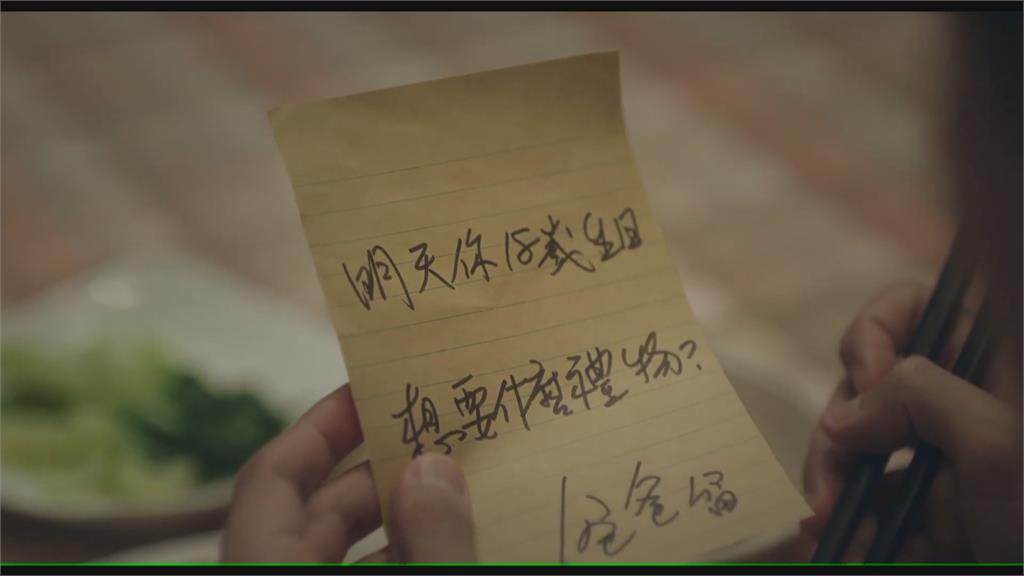 明天你18歲生日
想要什麼禮物?
爸爸留